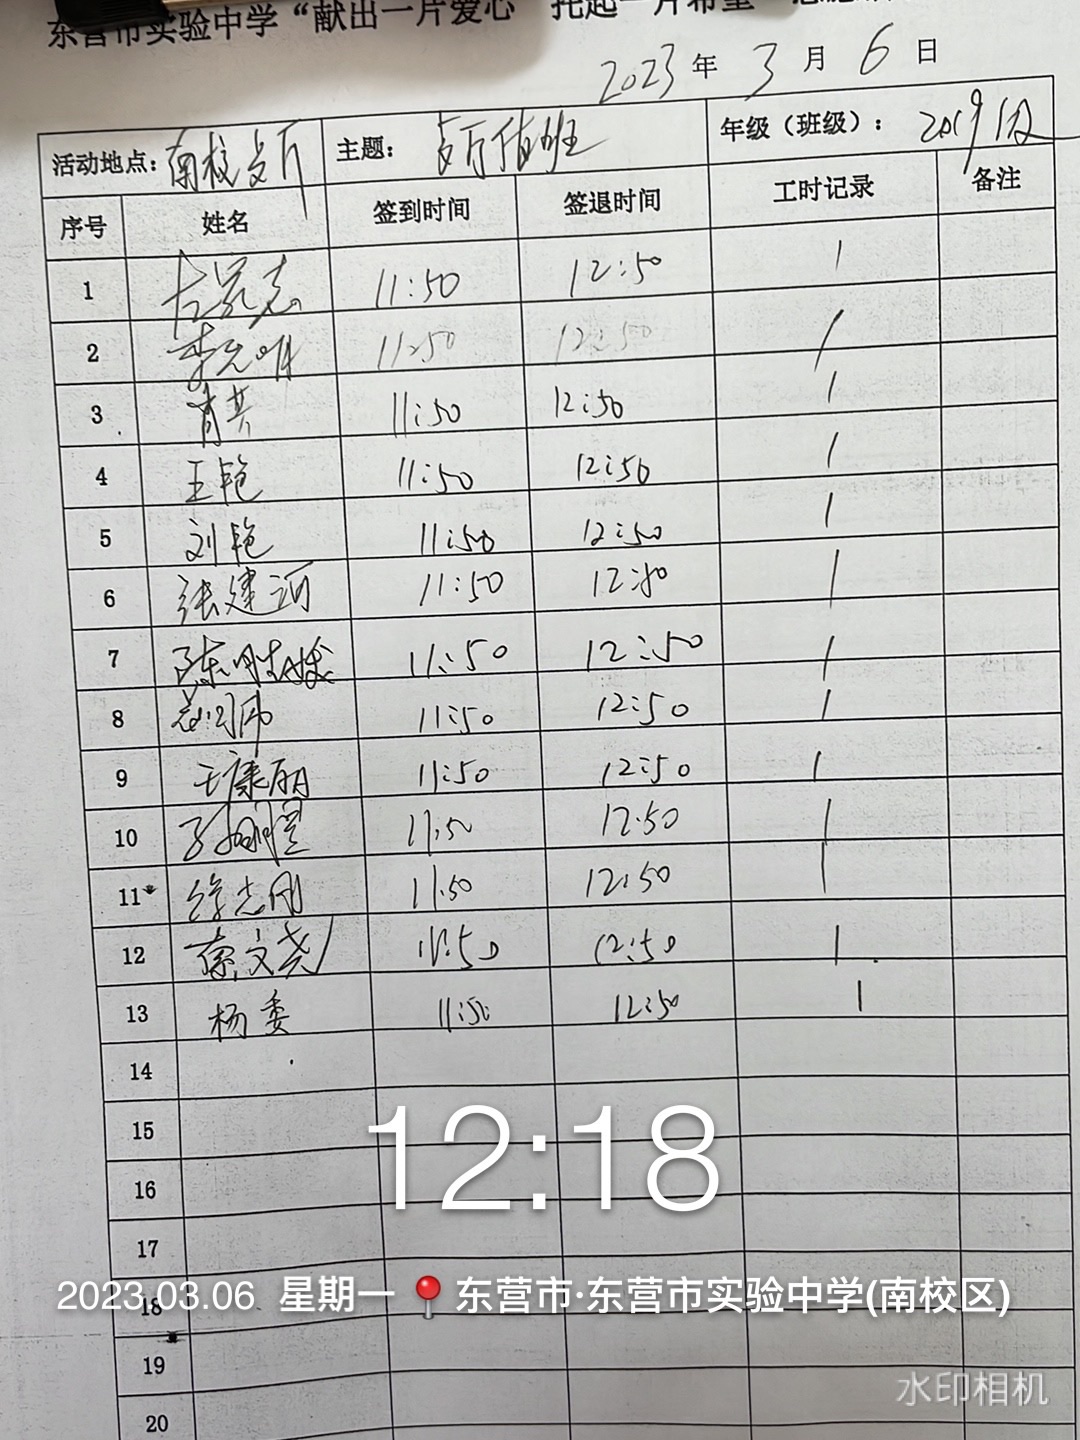 东营市实验中学“献出一片爱心 托起一片希望
2023年3月6日
活动地点: 南校 主题: 值班 年级（班级）: 2019级
序号 姓名 签到时间 签退时间 工时记录 备注
1 11:50 12:50 1
2 李光明 11:50 12:50 1
3 肖英 11:50 12:50 1
4 王艳 11:50 12:50 1
5 刘艳 11:50 12:50 1
6 张建河 11:50 12:50 1
7 11:50 12:50 1
8 11:50 12:50 1
9 王康丽 11:50 12:50 1
10 11:50 12:50 1
11 徐志刚 11:50 12:50 1
12 文尧 11:50 12:50 1
13 杨委 11:50 12:50 1
14
15
12:18
16
17
18
2023.03.06 星期一 东营市·东营市实验中学(南校区)
19
水印相机
20